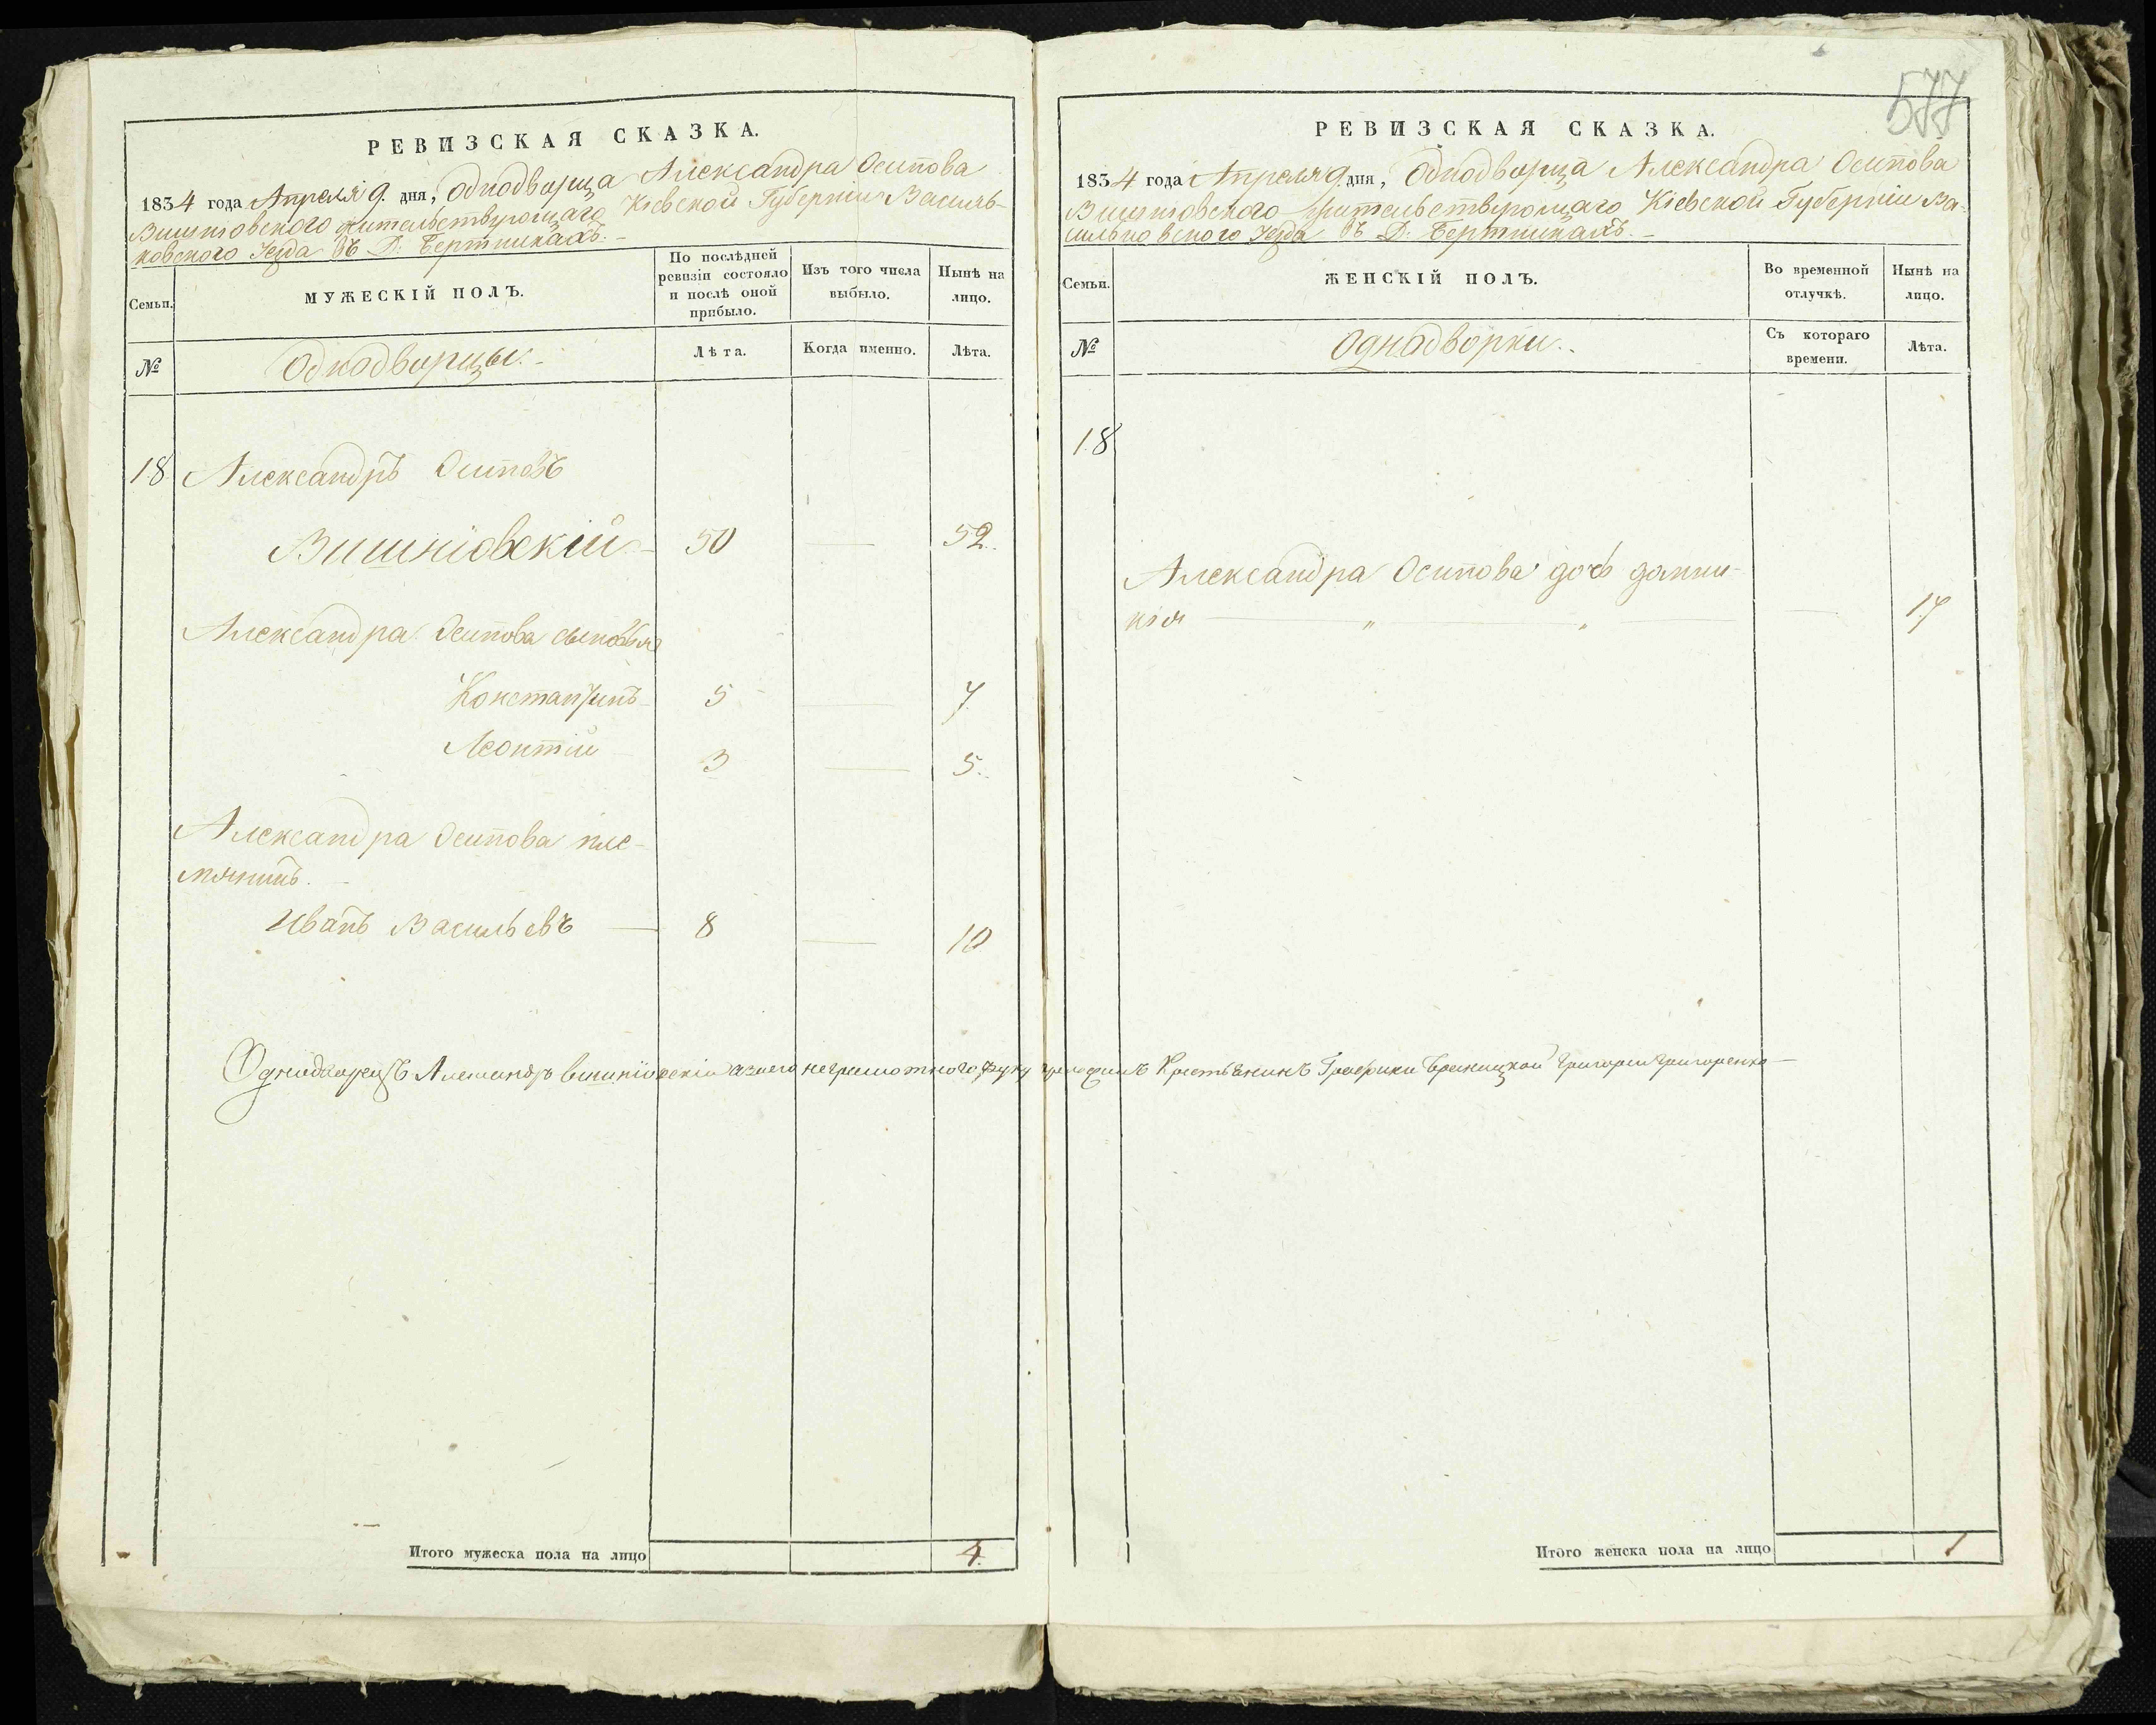 РЕВИЗСКАЯ СКАЗКА.
1834 года Апреля 9. дня, Однодворца Александра Осипова
Вишніовского жительствующаго Кіевской Губерніи Василь-
ковского Уезда въ Д: Бертникахъ.-
Семьи.
МУЖЕСКІЙ ПОЛЪ.
По послѣдней ревизіи состояло и послѣ оной прибыло.
Изъ того числа выбыло.
Нынѣ на лицо.
№
Однодворцы.-
Лѣта.
Когда именно.
Лѣта.
18 Александръ Осиповъ
Вишніовскій 50 — 52.
Александра Осипова сыновья
Константинъ 5 — 7.
Леонтій 3 — 5.
Александра Осипова пле-
мяникъ.
Иванъ Васильевъ — 8 — 10
Однодворецъ Александръ вишніовскій азнего неграмотного руку приложилъ Крестьянинъ Графини Браницкой Григорей Григоренко —
Итого мужеска пола на лицо 4.
577
РЕВИЗСКАЯ СКАЗКА.
1834 года Апреля 9. дня, Однодворца Александра Осипова
Вишніовского жительствующаго Кіевской Губерніи Ва-
сильковского Уезда въ Д: Бертникахъ.-
Семьи.
ЖЕНСКІЙ ПОЛЪ.
Во временной отлучкѣ.
Нынѣ на лицо.
№
Однодворки.
Съ котораго времени.
Лѣта.
18
Александра Осипова дочь доми-
кія — „ — „ — — 17
Итого женска пола на лицо 1